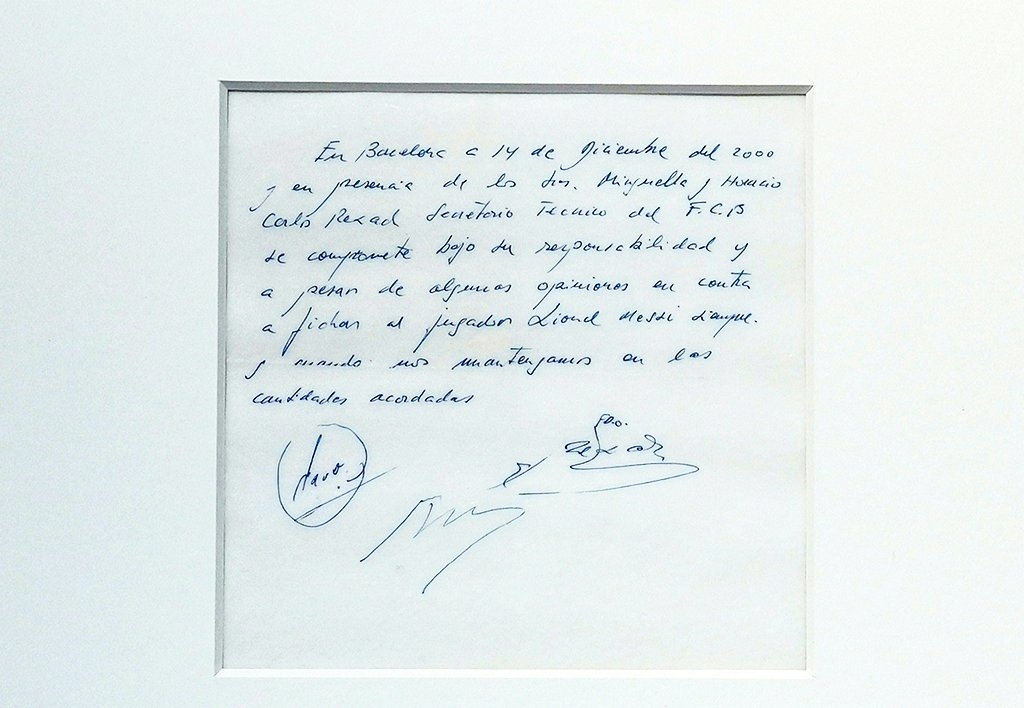 En Barcelona a 14 de Diciembre del 2000
y en presencia de los Srs. Minguella y Horacio
Carlos Rexach Secretario Tecnico del F.C.B
se compromete bajo su responsabilidad y
a pesar de algunas opiniones en contra
a fichar al jugador Lionel Messi siempre
y cuando nos mantengamos en las
cantidades acordadas
Fdo.